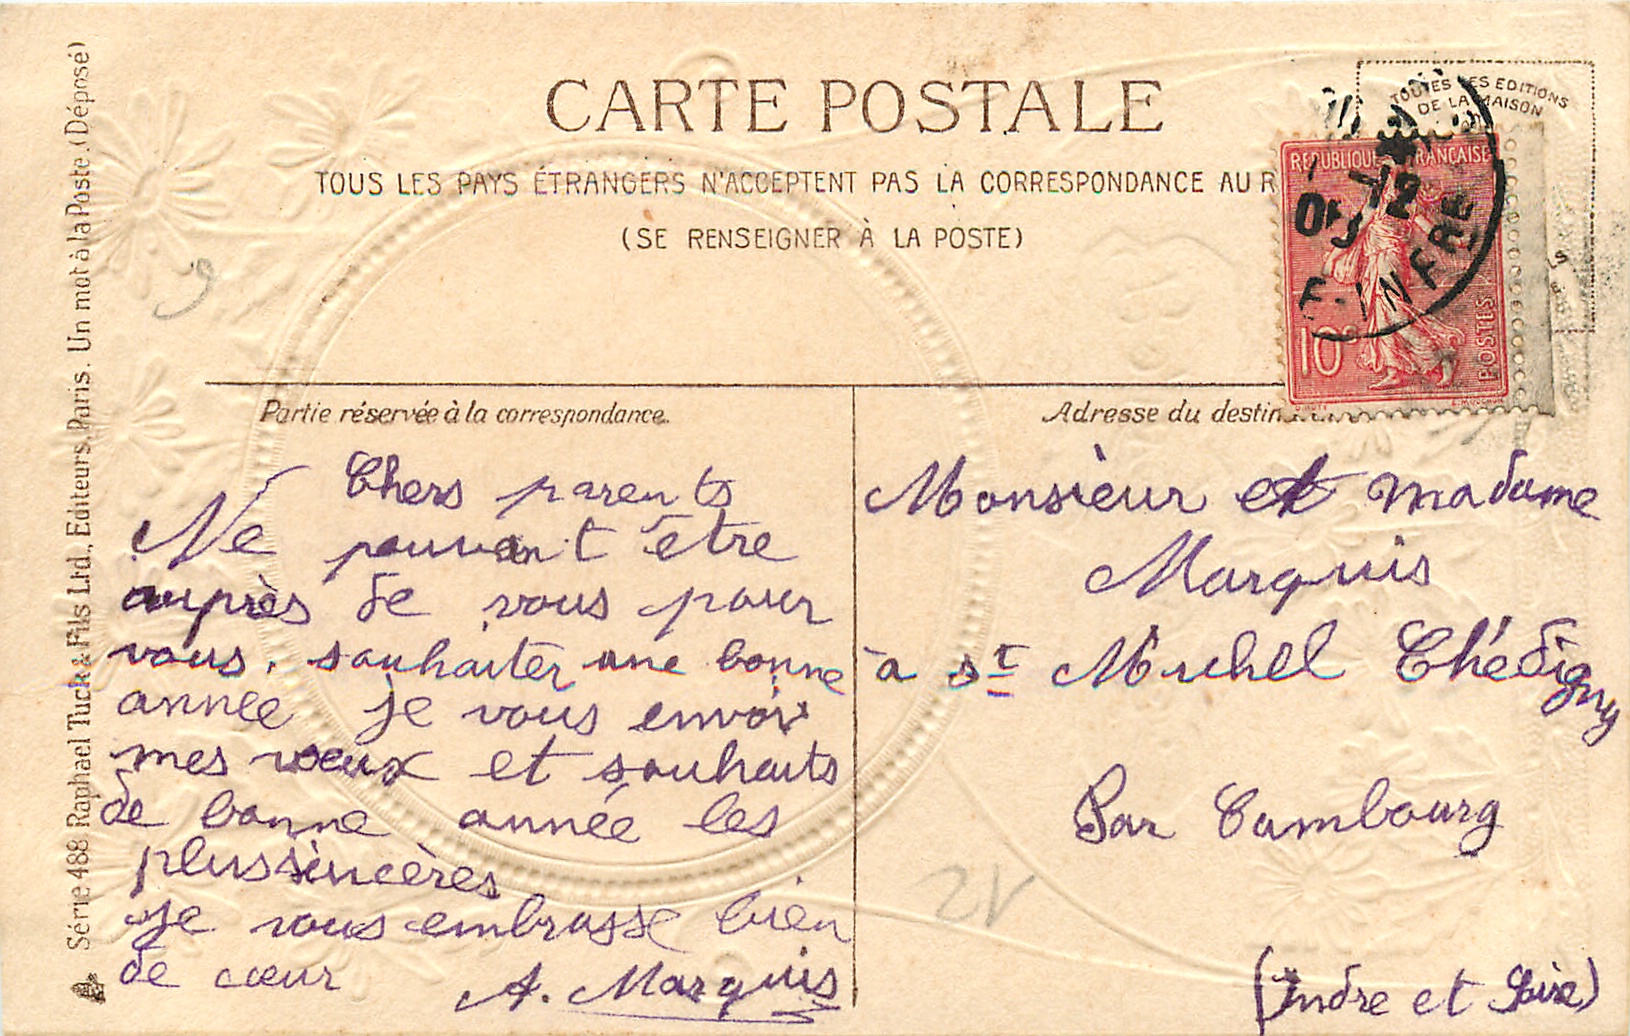 CARTE POSTALE
TOUS LES PAYS ÉTRANGERS N'ACCEPTENT PAS LA CORRESPONDANCE AU R
(SE RENSEIGNER À LA POSTE)
TOUTES LES EDITIONS
DE LA MAISON
REPUBLIQUE FRANÇAISE
10c
POSTES
12
05
E-INFRE
Partie réservée à la correspondance.
Chers parents
Ne pouvant être
auprès de vous pour
vous. souhaiter une bonne
année je vous envoi
mes vœux et souhaits
de bonne année les
plus sincères
je vous embrasse bien
de cœur
A. Marquis
Adresse du destin
Monsieur et madame
Marquis
à st Michel Chédigny
Par Cambourg
(Indre et Loire)
Série 488 Raphael Tuck & Fils Ltd., Editeurs, Paris. Un mot à la Poste. (Déposé)